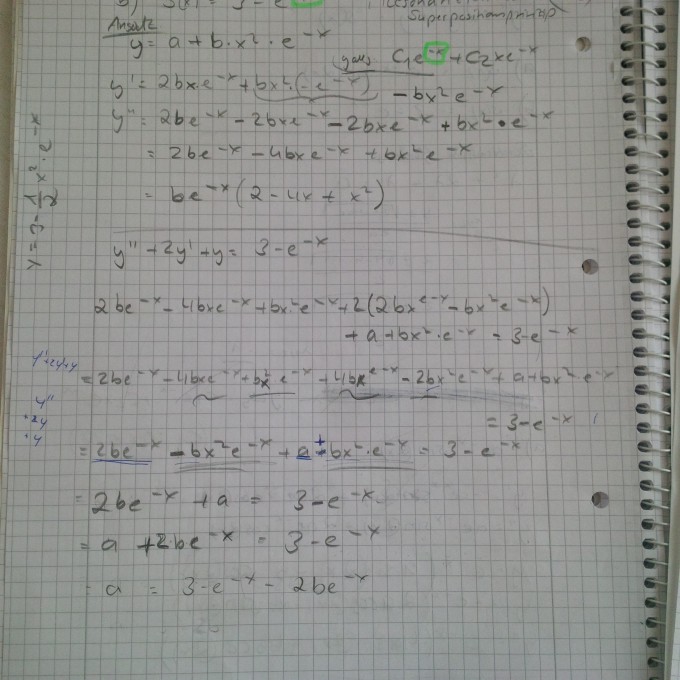 b) S(x) = 3 - e
Superpositionsprinzip
Ansatz
y = a + b·x²·e^-x
yhom C₁e^-x + C₂xe^-x
y' = 2bx·e^-x + bx²·(-e^-x)
- bx²e^-x
y'' = 2be^-x - 2bxe^-x - 2bxe^-x + bx²·e^-x
= 2be^-x - 4bxe^-x + bx²e^-x
= be^-x (2 - 4x + x²)
y = 3 - 1/2 x²·e^-x
y'' + 2y' + y = 3 - e^-x
2be^-x - 4bxe^-x + bx²e^-x + 2(2bxe^-x - bx²e^-x)
+ a + bx²·e^-x = 3 - e^-x
y''+2y'+y
= 2be^-x - 4bxe^-x + bx²e^-x + 4bxe^-x - 2bx²e^-x + a + bx²e^-x
y''
= 3 - e^-x
·2y
·y
= 2be^-x - bx²e^-x + a + bx²·e^-x = 3 - e^-x
= 2be^-x + a = 3 - e^-x
= a + 2be^-x = 3 - e^-x
= a = 3 - e^-x - 2be^-x